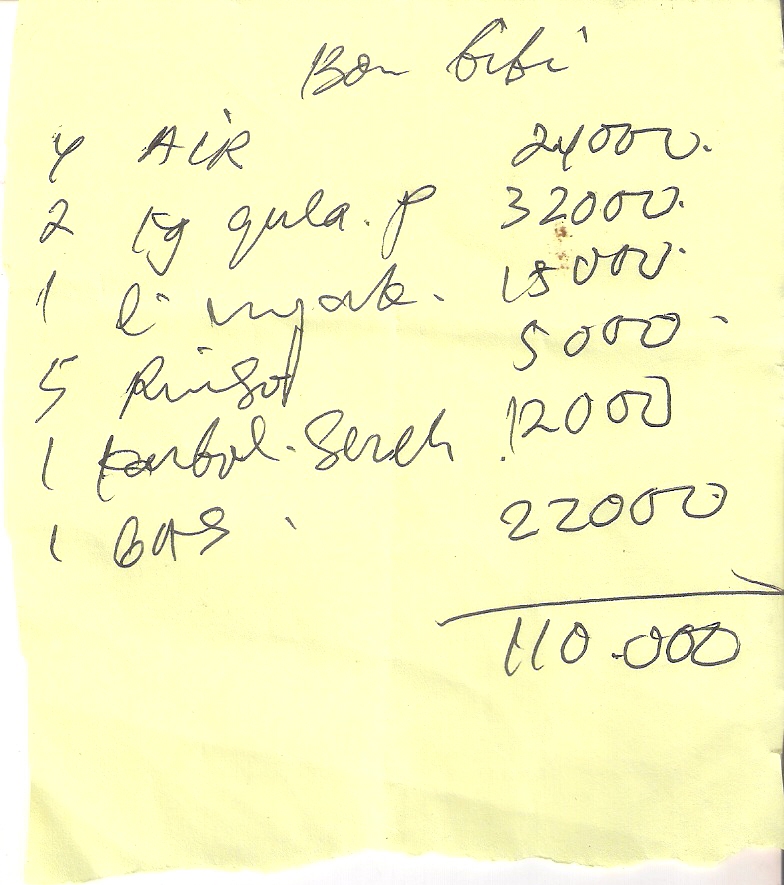 Bon bibi
4 AIR 24000.
2 kg gula. p 32000.
1 l. minyak. 15000.
5 Rinso 5000
1 karbol. Sereh 12000
1 GAS 22000
110.000